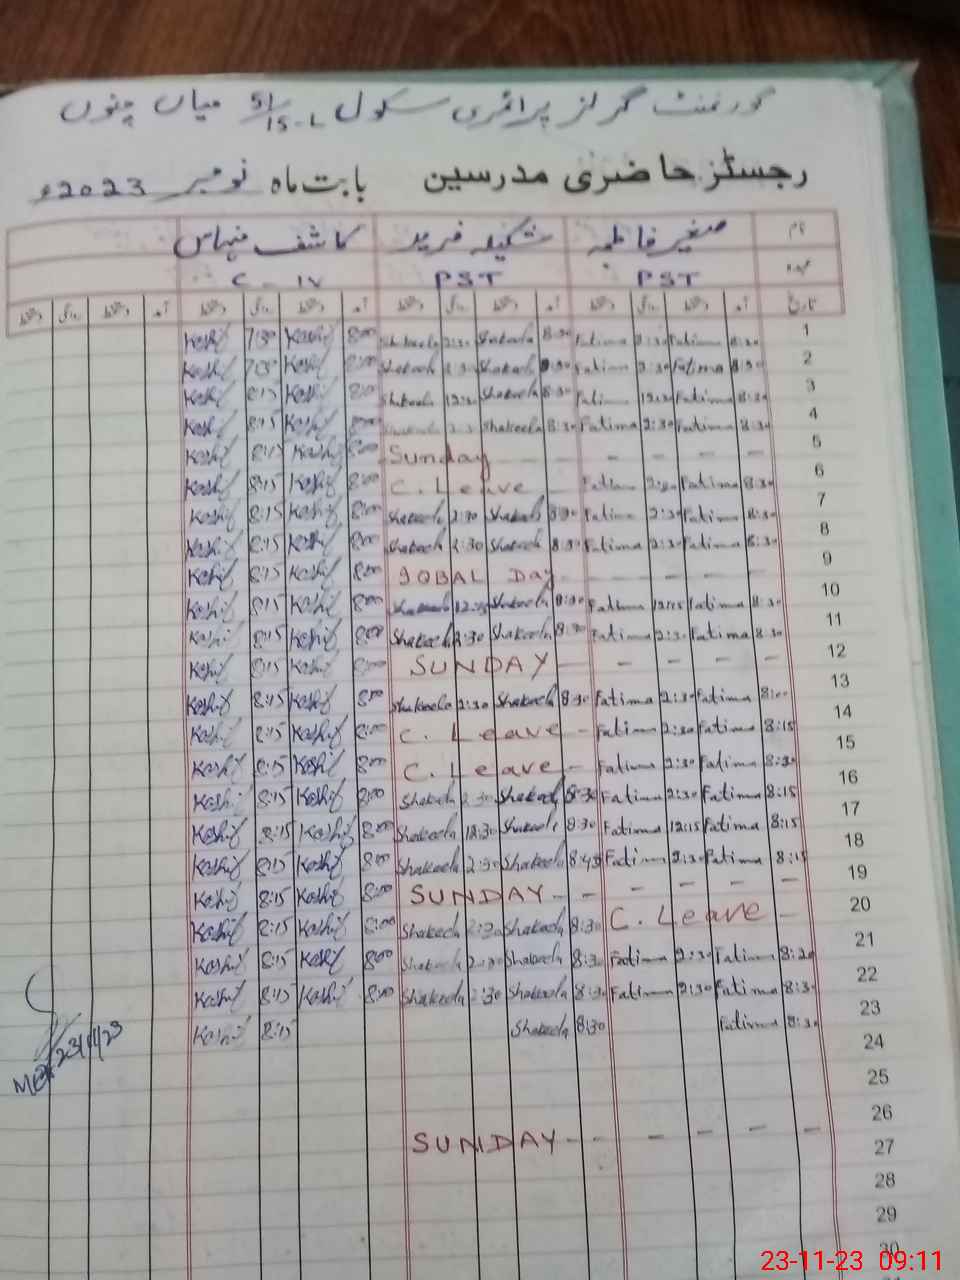 گورنمنٹ گرلز پرائمری سکول 51/15-L میاں چنوں
رجسٹر حاضری مدرسین بابت ماہ نومبر 2023ء
نام صغیر فاطمہ شکیلہ فرید کاشف
عہدہ PST PST C-IV
تاریخ آمد دستخط روانگی دستخط آمد دستخط روانگی دستخط آمد دستخط روانگی دستخط آمد دستخط روانگی دستخط
Kashif 7:30 Kashif 8:00 Shakeela 2:30 Shakeela 8:30 Fatima 2:30 Fatima 8:30 1
Kashif 7:30 Kashif 8:00 Shakeela 2:30 Shakeela 8:30 Fatima 2:30 Fatima 8:30 2
Kashif 8:15 Kashif 8:00 Shakeela 12:30 Shakeela 8:30 Fatima 12:30 Fatima 8:30 3
Kashif 8:15 Kashif 8:00 Shakeela 2:30 Shakeela 8:30 Fatima 2:30 Fatima 8:30 4
Kashif 8:15 Kashif 8:00 Sunday - - - - - 5
Kashif 8:15 Kashif 8:00 C. Leave - Fatima 2:30 Fatima 8:30 6
Kashif 8:15 Kashif 8:00 Shakeela 2:30 Shakeela 8:30 Fatima 2:30 Fatima 8:30 7
Kashif 8:15 Kashif 8:00 Shakeela 2:30 Shakeela 8:30 Fatima 2:30 Fatima 8:30 8
Kashif 8:15 Kashif 8:00 IQBAL Day - - - - - 9
Kashif 8:15 Kashif 8:00 Shakeela 12:15 Shakeela 8:30 Fatima 12:15 Fatima 8:30 10
Kashif 8:15 Kashif 8:00 Shakeela 2:30 Shakeela 8:30 Fatima 2:30 Fatima 8:30 11
Kashif 8:15 Kashif 8:00 SUNDAY - - - - - 12
Kashif 8:15 Kashif 8:00 Shakeela 2:30 Shakeela 8:30 Fatima 2:30 Fatima 8:00 13
Kashif 8:15 Kashif 8:00 C. Leave - Fatima 2:30 Fatima 8:15 14
Kashif 8:15 Kashif 8:00 C. Leave - Fatima 2:30 Fatima 8:30 15
Kashif 8:15 Kashif 8:00 Shakeela 2:30 Shakeela 8:30 Fatima 2:30 Fatima 8:15 16
Kashif 8:15 Kashif 8:00 Shakeela 12:30 Shakeela 8:30 Fatima 12:15 Fatima 8:15 17
Kashif 8:15 Kashif 8:00 Shakeela 2:30 Shakeela 8:45 Fatima 2:30 Fatima 8:15 18
Kashif 8:15 Kashif 8:00 SUNDAY - - - - - - 19
Kashif 8:15 Kashif 8:00 Shakeela 2:30 Shakeela 8:30 C. Leave - 20
Kashif 8:15 Kashif 8:00 Shakeela 2:30 Shakeela 8:30 Fatima 2:30 Fatima 8:20 21
Kashif 8:15 Kashif 8:00 Shakeela 2:30 Shakeela 8:30 Fatima 2:30 Fatima 8:30 22
Kashif 8:15 Shakeela 8:30 Fatima 8:30 23
23/11/23
24
25
26
SUNDAY - - - - - - 27
28
29
30
23-11-23 09:11